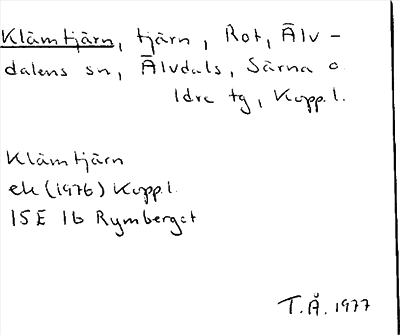 Klämtjärn, tjärn, Rot, Älv-
dalens sn, Älvdals, Särna o
Idre tg, Kopp.l.
Klämtjärn
ek (1976) Kopp.l.
15E 1b Rymberget
T.Å. 1977